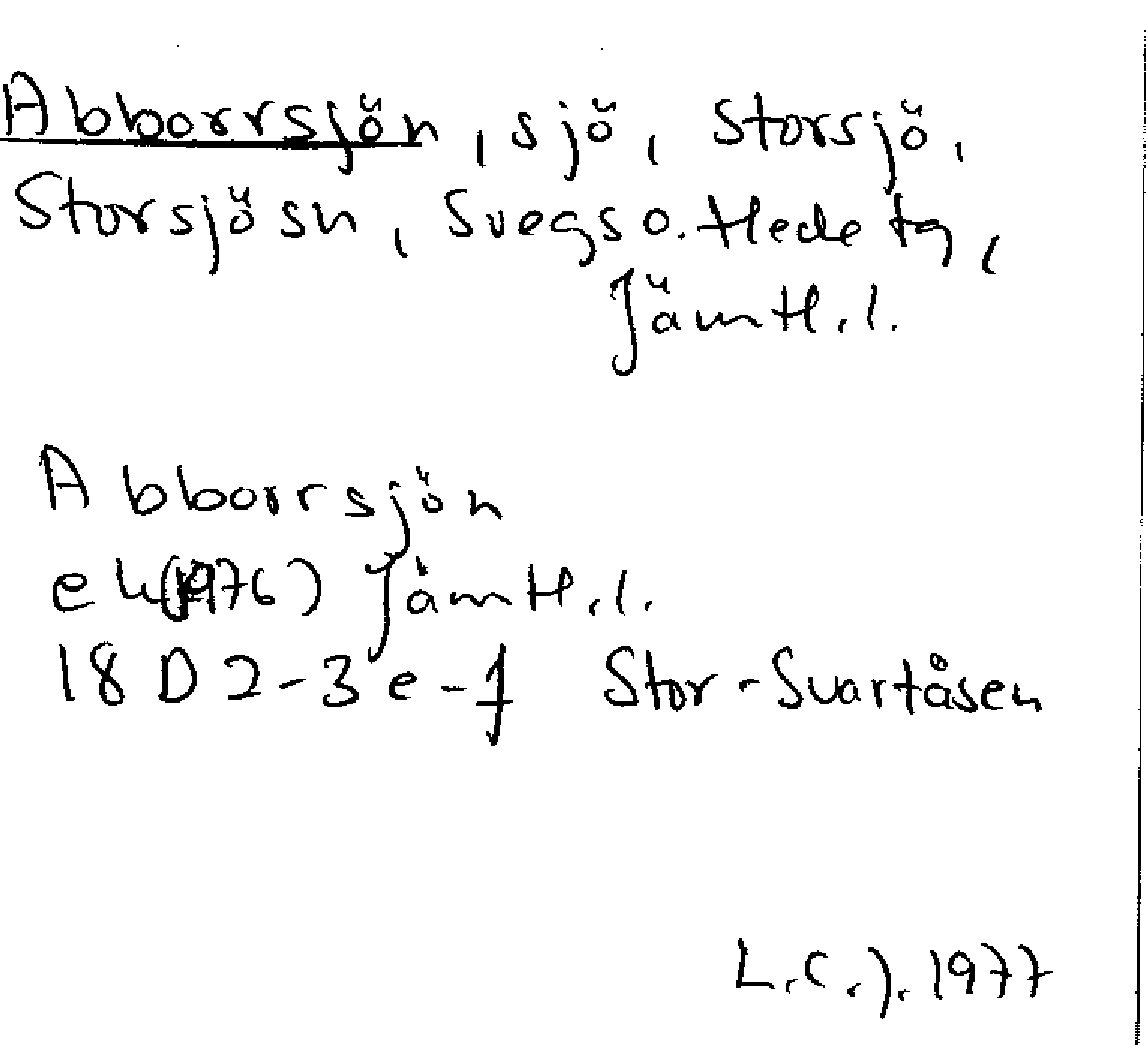 Abborrsjön, sjö, Storsjö,
Storsjö sn, Svegs o. Hede tg,
Jämtl. l.
Abborrsjön
ek (1976) Jämtl. l.
18 D 2-3 e-f Stor-Svartåsen
L.C.J. 1977